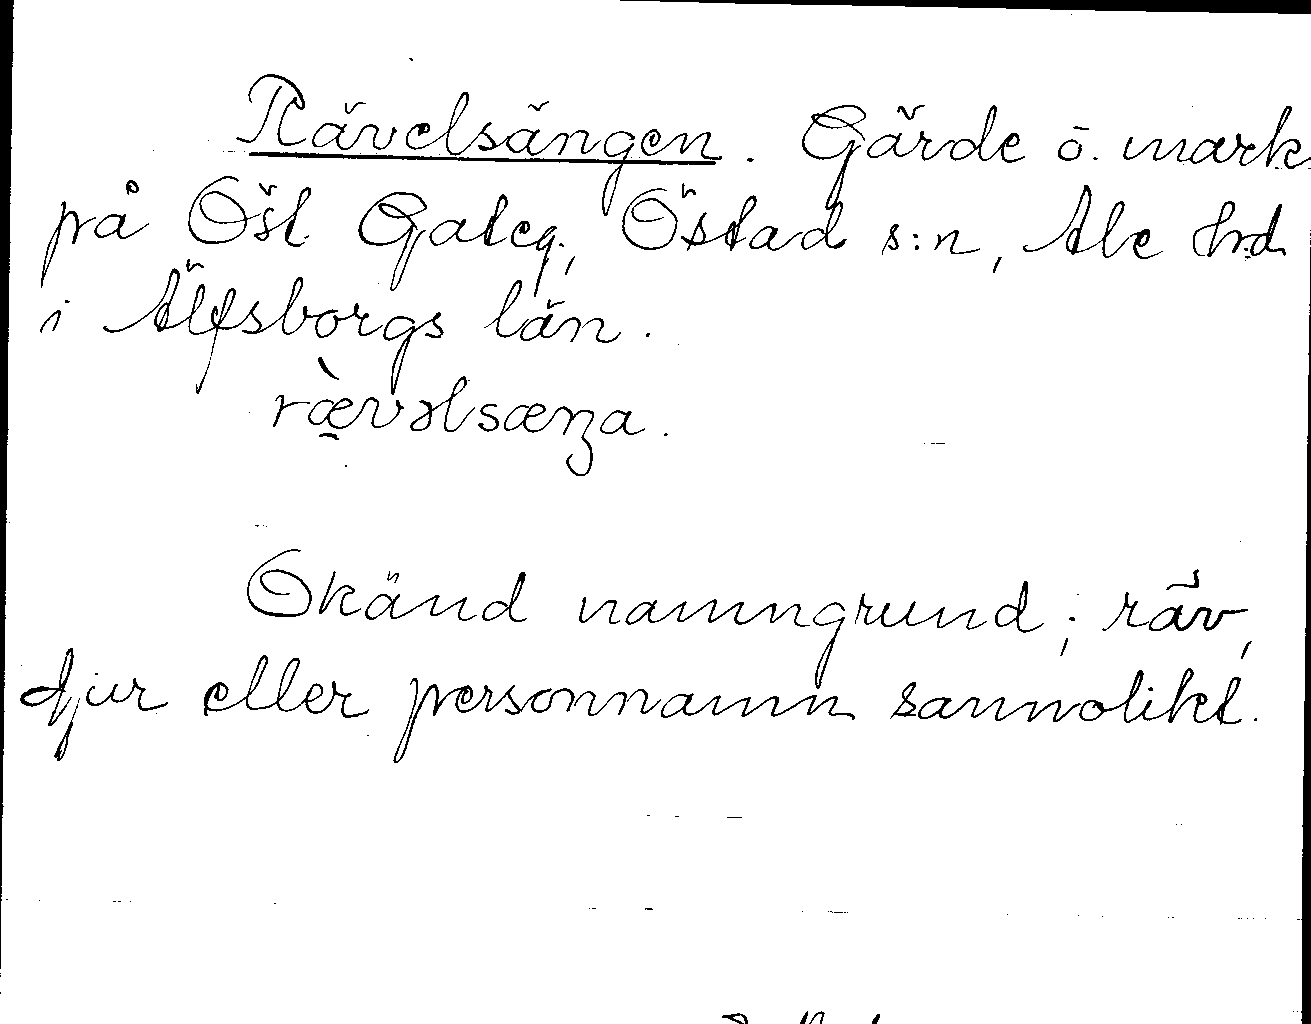 Rävelsängen. Gärde o. mark
på Östl. Gateg., Östad s:n, Ale hrd
i Älfsborgs län.
rævəlsæŋa.
Okänd namngrund; räv,
djur eller personnamn sannolikt.